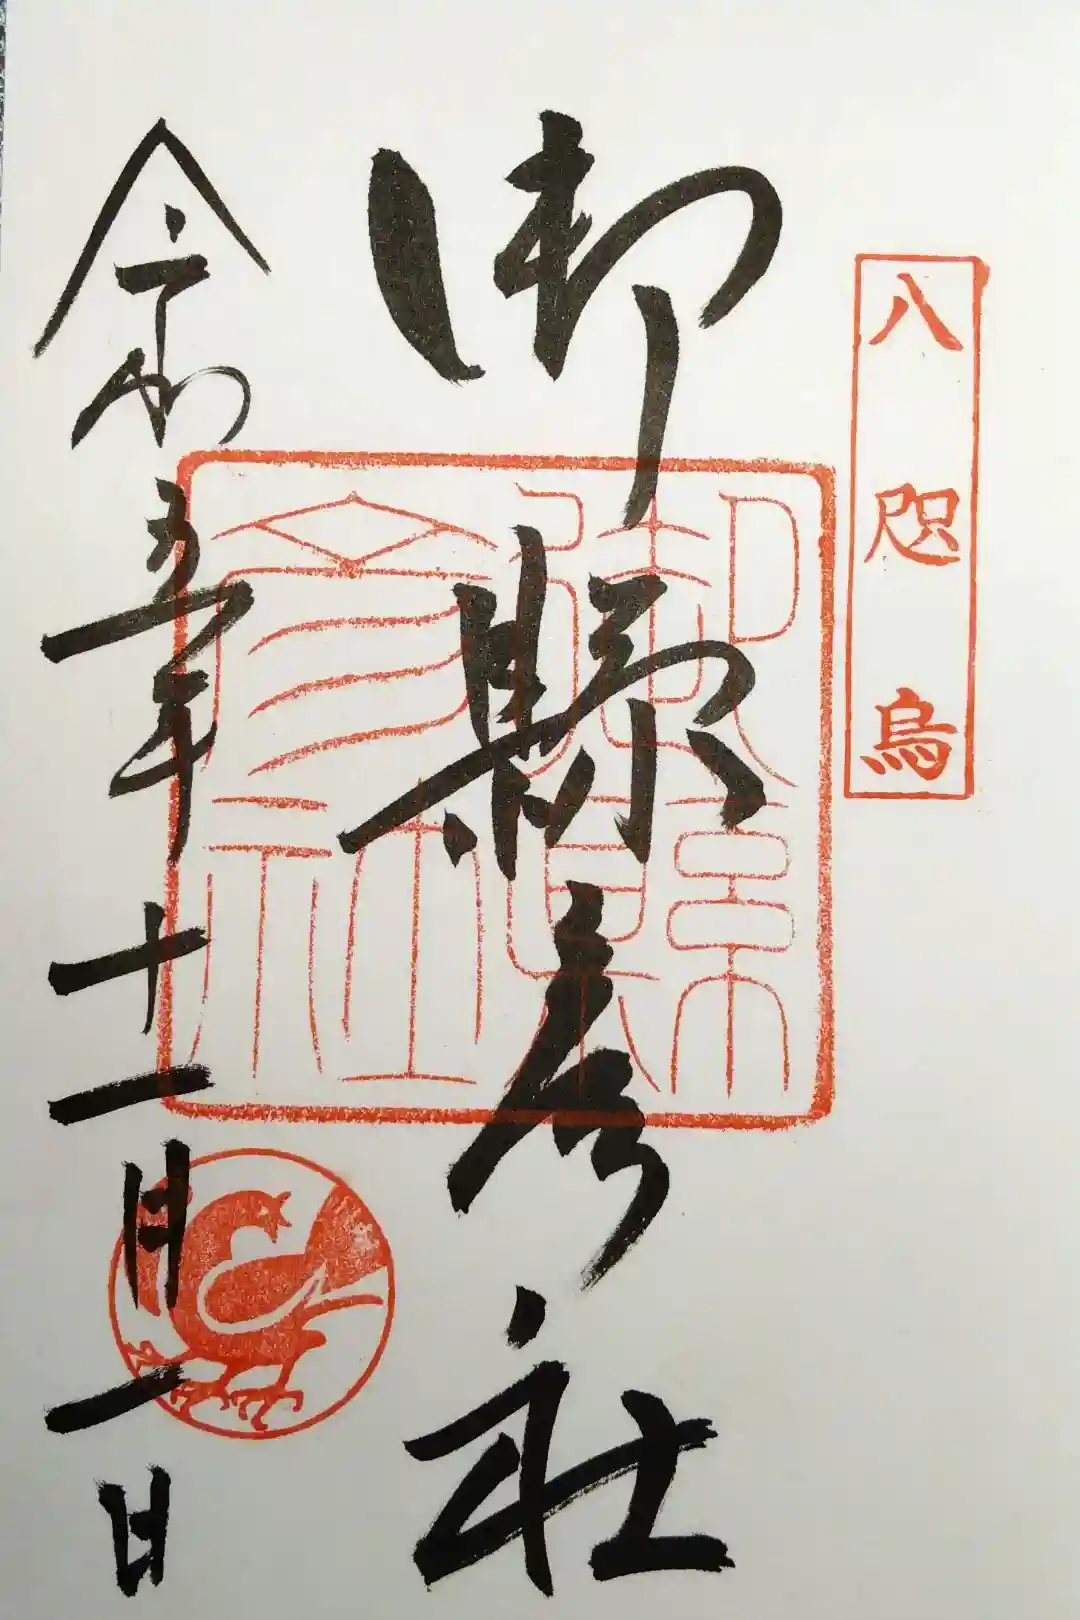 八咫烏
御縣彦社
御縣
彦社
令和五年十一月一日